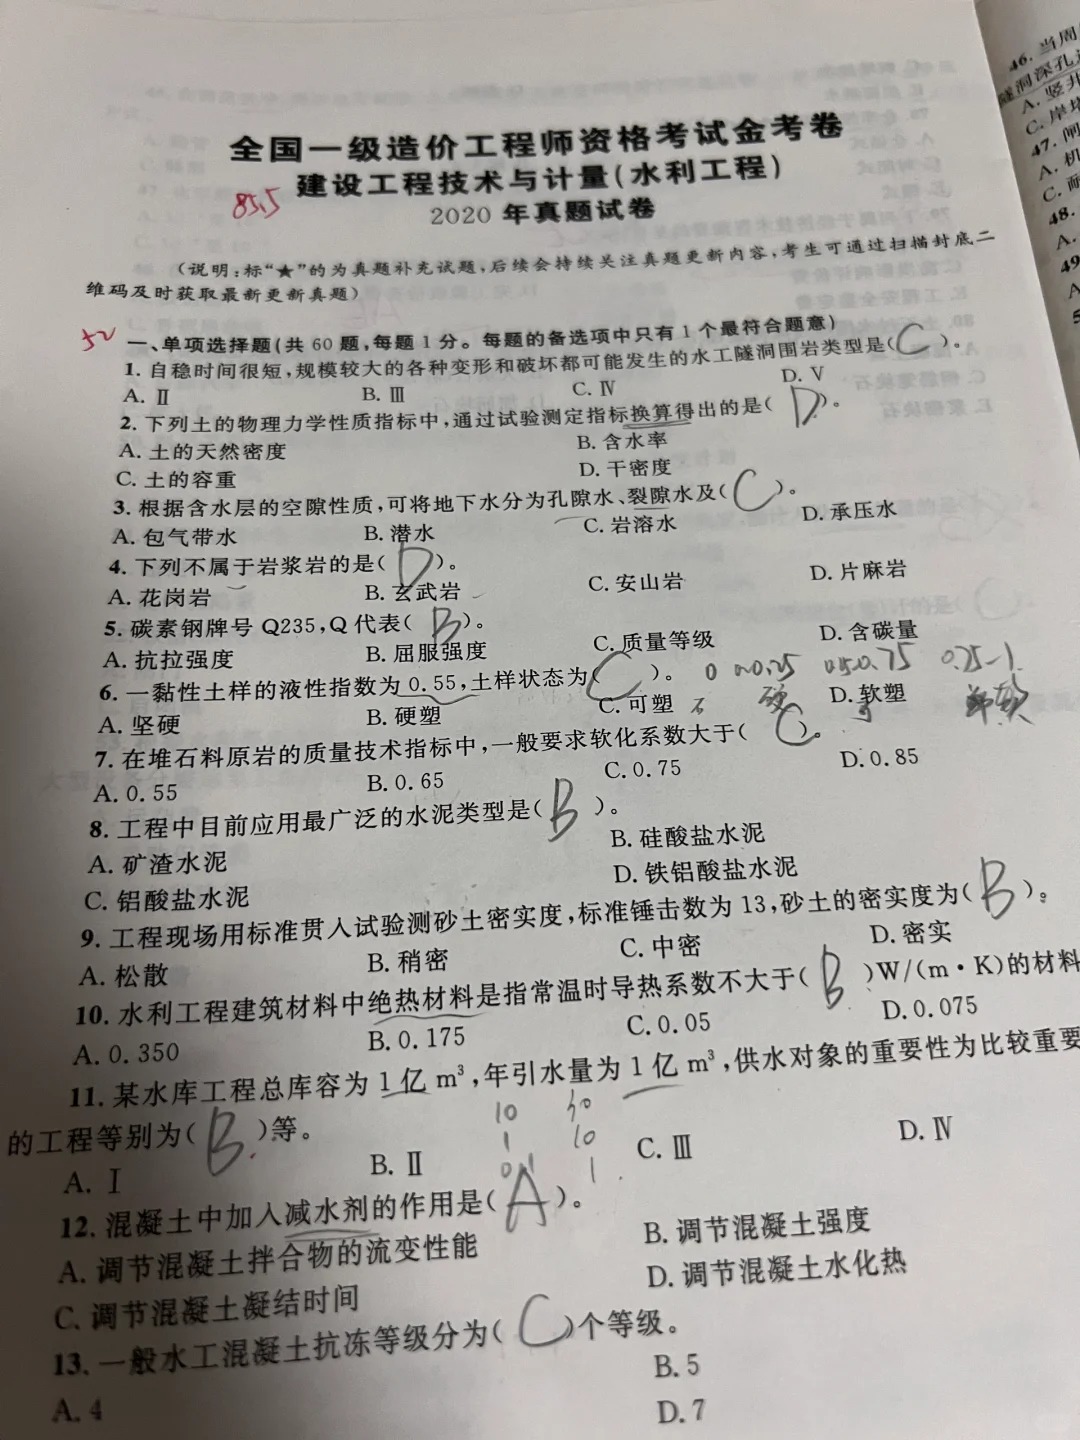 全国一级造价工程师资格考试金考卷
建设工程技术与计量(水利工程)
85.5
2020 年真题试卷
(说明:标“★”的为真题补充试题,后续会持续关注真题更新内容,考生可通过扫描封底二
维码及时获取最新更新真题)
52
一、单项选择题(共 60 题,每题 1 分。每题的备选项中只有 1 个最符合题意)
1. 自稳时间很短,规模较大的各种变形和破坏都可能发生的水工隧洞围岩类型是( C )。
A. Ⅱ B. Ⅲ C. Ⅳ D. Ⅴ
2. 下列土的物理力学性质指标中,通过试验测定指标换算得出的是( D )。
A. 土的天然密度 B. 含水率
C. 土的容重 D. 干密度
3. 根据含水层的空隙性质,可将地下水分为孔隙水、裂隙水及( C )。
A. 包气带水 B. 潜水 C. 岩溶水 D. 承压水
4. 下列不属于岩浆岩的是( D )。
A. 花岗岩 B. 玄武岩 C. 安山岩 D. 片麻岩
5. 碳素钢牌号 Q235,Q 代表( B )。
A. 抗拉强度 B. 屈服强度 C. 质量等级 D. 含碳量
6. 一黏性土样的液性指数为 0.55,土样状态为( C )。
A. 坚硬 B. 硬塑 C. 可塑 D. 软塑
7. 在堆石料原岩的质量技术指标中,一般要求软化系数大于( C )。
A. 0.55 B. 0.65 C. 0.75 D. 0.85
8. 工程中目前应用最广泛的水泥类型是( B )。
A. 矿渣水泥 B. 硅酸盐水泥
C. 铝酸盐水泥 D. 铁铝酸盐水泥
9. 工程现场用标准贯入试验测砂土密实度,标准锤击数为 13,砂土的密实度为( B )。
A. 松散 B. 稍密 C. 中密 D. 密实
10. 水利工程建筑材料中绝热材料是指常温时导热系数不大于( B )W/(m·K)的材料
A. 0.350 B. 0.175 C. 0.05 D. 0.075
11. 某水库工程总库容为 1 亿 m³,年引水量为 1 亿 m³,供水对象的重要性为比较重要
10
1 10
0.1 1
的工程等别为( B )等。
A. Ⅰ B. Ⅱ C. Ⅲ D. Ⅳ
12. 混凝土中加入减水剂的作用是( A )。
A. 调节混凝土拌合物的流变性能 B. 调节混凝土强度
C. 调节混凝土凝结时间 D. 调节混凝土水化热
13. 一般水工混凝土抗冻等级分为( C )个等级。
A. 4 B. 5
D. 7
46. 当周
隧洞深孔
A. 竖井
C. 岸塔
47. 闸
A. 机
C. 耐
48.
A.
49
A
5